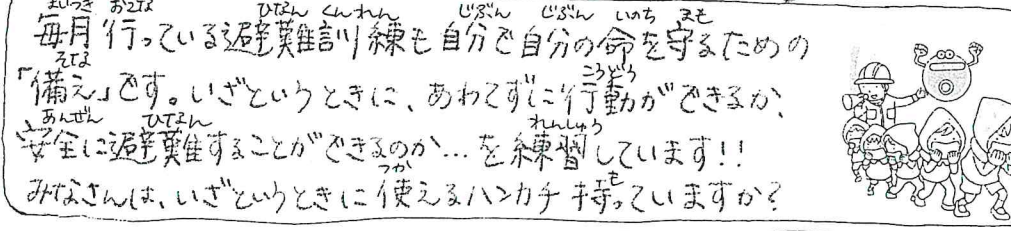 毎月行っている避難訓練も自分で自分の命を守るための
「備え」です。いざというときに、あわてずに行動ができるか、
安全に避難することができるのか…を練習しています!!
みなさんは、いざというときに使えるハンカチ持っていますか?